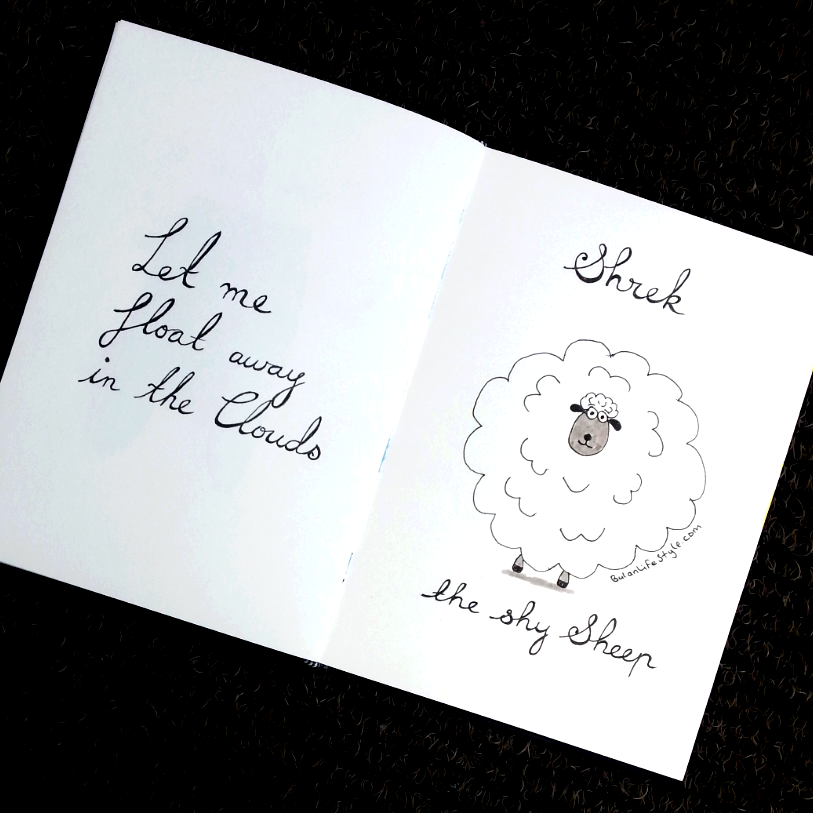 Let me
float away
in the Clouds
Shrek
BulanLifestyle.com
the shy Sheep